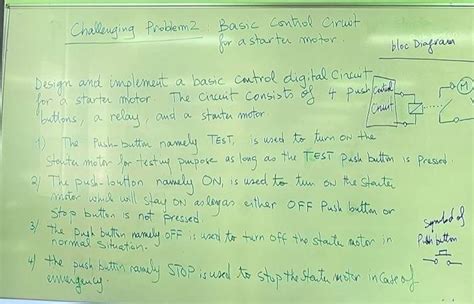 Challenging Problem 2 Basic Control Circuit
for a starter motor.
bloc Diagram
Design and implement a basic control digital Circuit
for a starter motor. The Circuit Consists of 4 push
buttons, a relay, and a starter motor
Control
Circuit
M
1) The Push-button namely TEST, is used to turn on the
starter motor for testing purpose as long as the TEST push button is pressed
2) The push-button namely ON, is used to turn on the starter
motor which will stay ON as long as either OFF Push button or
Stop button is not pressed
3) the push button namely OFF is used to turn off the starter motor in
normal situation.
4) the push button namely STOP is used to stop the starter motor in case of
emergency.
symbol of
Push button